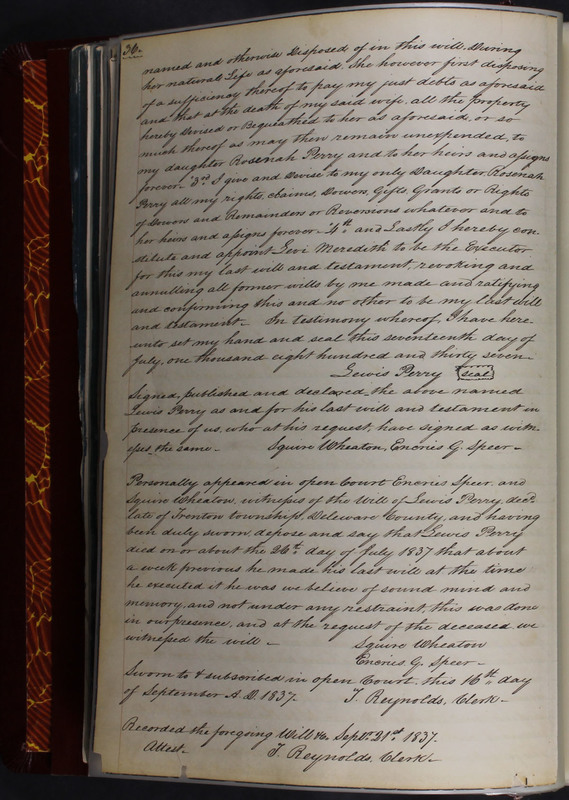 36.
named and otherwise Disposed of in this will During
her natural Life as aforesaid. She however first disposing
of a sufficiency thereof to pay my just debts as aforesaid
and that at the death of my said wife, all the property
hereby Devised or Bequeathed to her as aforesaid, or so
much thereof as may then remain unexpended, to
my daughter Rosenah Perry and to her heirs and assigns
forever. 3rd I give and Devise to my only Daughter Rosenah
Perry all my rights, claims, Dowers, Gifts, Grants or Rights
of Dowers and Remainders or Reversions whatever and to
her heirs and assigns forever – 4th and Lastly I hereby con-
stitute and appoint Levi Meredith to be the Executor
for this my last will and testament, revoking and
annulling all former wills by me made and ratifying
and confirming this and no other to be my last will
and testament – In testimony whereof, I have here
unto set my hand and seal this seventeenth day of
July, one thousand eight hundred and thirty seven –
Lewis Perry seal
Signed, published and declared the above named
Lewis Perry as and for his last will and testament in
presence of us, who at his request, have signed as witn-
esses, the same – Squire Wheaton, Encries G. Speer –
Personally appeared in open Court Encries Speer and
Squire Wheaton, witnesses of the Will of Lewis Perry, decd
late of Trenton township, Deleware County, and having
been duly sworn, depose and say that Lewis Perry
died on or about the 26th day of July 1837 that about
a week previous he made his last will at the time
he executed it he was we believe of sound mind and
memory, and not under any restraint, this was done
in our presence, and at the request of the deceased we
witnessed the will –
Squire Wheaton
Encries G. Speer –
Sworn to & subscribed in open Court, this 16th day
of September A.D. 1837. T. Reynolds, Clerk –
Recorded the foregoing Will &c. Septr. 21st 1837.
Attest – T. Reynolds, Clerk –